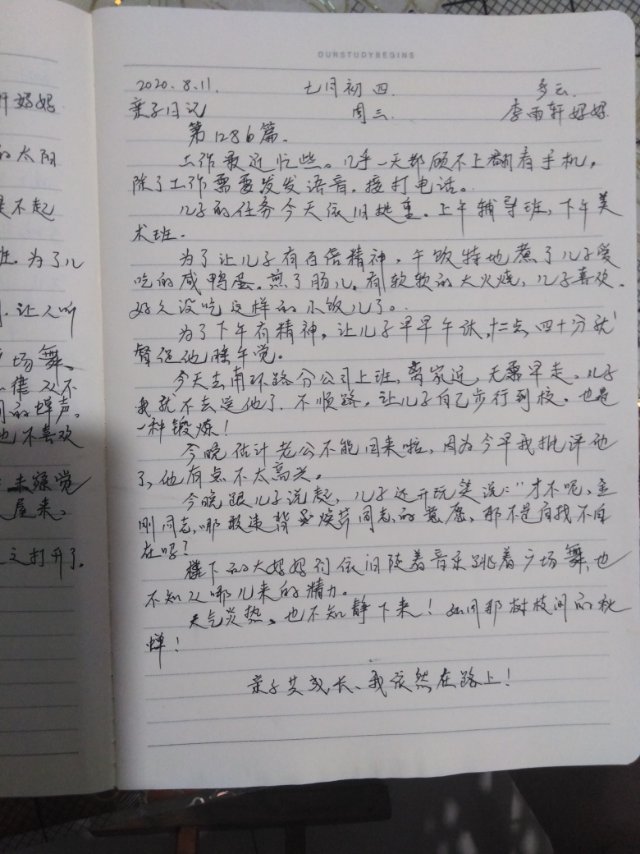 轩妈妈
的太阳
是不起
班.为了儿
让人听
广场舞、
同的蝉声。
也不喜欢
去睡觉
屋来、
之打开了.
OURSTUDYBEGINS
2020.8.11. 七月初四. 多云.
亲子日记 周三. 李雨轩妈妈
第1286篇.
工作最近忙些。几乎一天都顾不上翻看手机，
除了工作需要发发语音，接打电话。
儿子的任务今天依旧挺重。上午辅导班，下午美
术班.
为了让儿子有百倍精神，午饭特地煮了儿子爱
吃的咸鸭蛋。煎了肠儿。有软软的大火烧，儿子喜欢.
好久没吃这样的小饭儿了。
为了下午有精神，让儿子早早午休，十二点四十分就
督促他睡午觉。
今天去南环路分公司上班，离家远，无需早走。儿子
我就不去送他了.不顺路，让儿子自己步行到校。也是
一种锻炼！
今晚估计老公不能回来啦，因为今早我批评他
了，他有点不太高兴。
今晚跟儿子说起，儿子还开玩笑说："才不呢，金
刚同志，哪敢违背焕芹同志的意愿，那不是自找不自
在呀？
楼下的大妈妈们依旧随着音乐跳着广场舞，也
不知从哪儿来的精力。
天气炎热。也不知静下来！如同那树枝间的秋
蝉！
亲子共成长、我依然在路上！